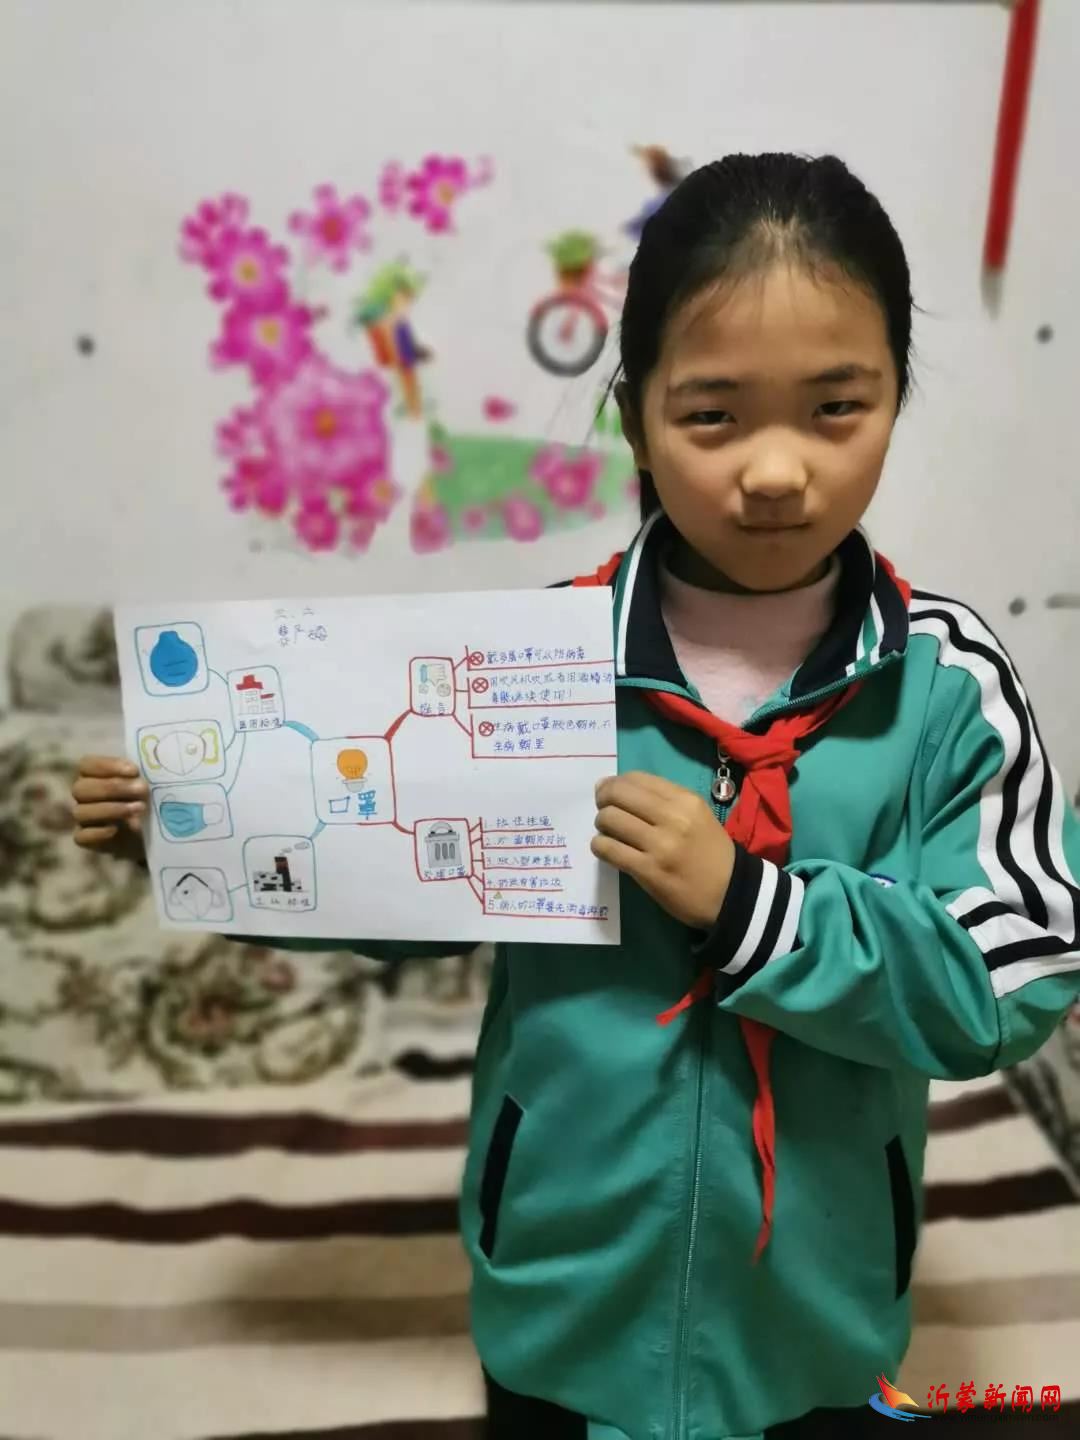 三、六
口罩
医用标准
工业标准
谣言
戴多层口罩可以防病毒
用吹风机吹或者用酒精消
毒能继续使用！
生病戴口罩颜色朝外，不
生病朝里
处理口罩
1.拉住挂绳
2.外面朝外对折
3.放入塑料袋扎紧
4.扔进有害垃圾
5.病人的口罩要先消毒再扔
沂蒙新闻网